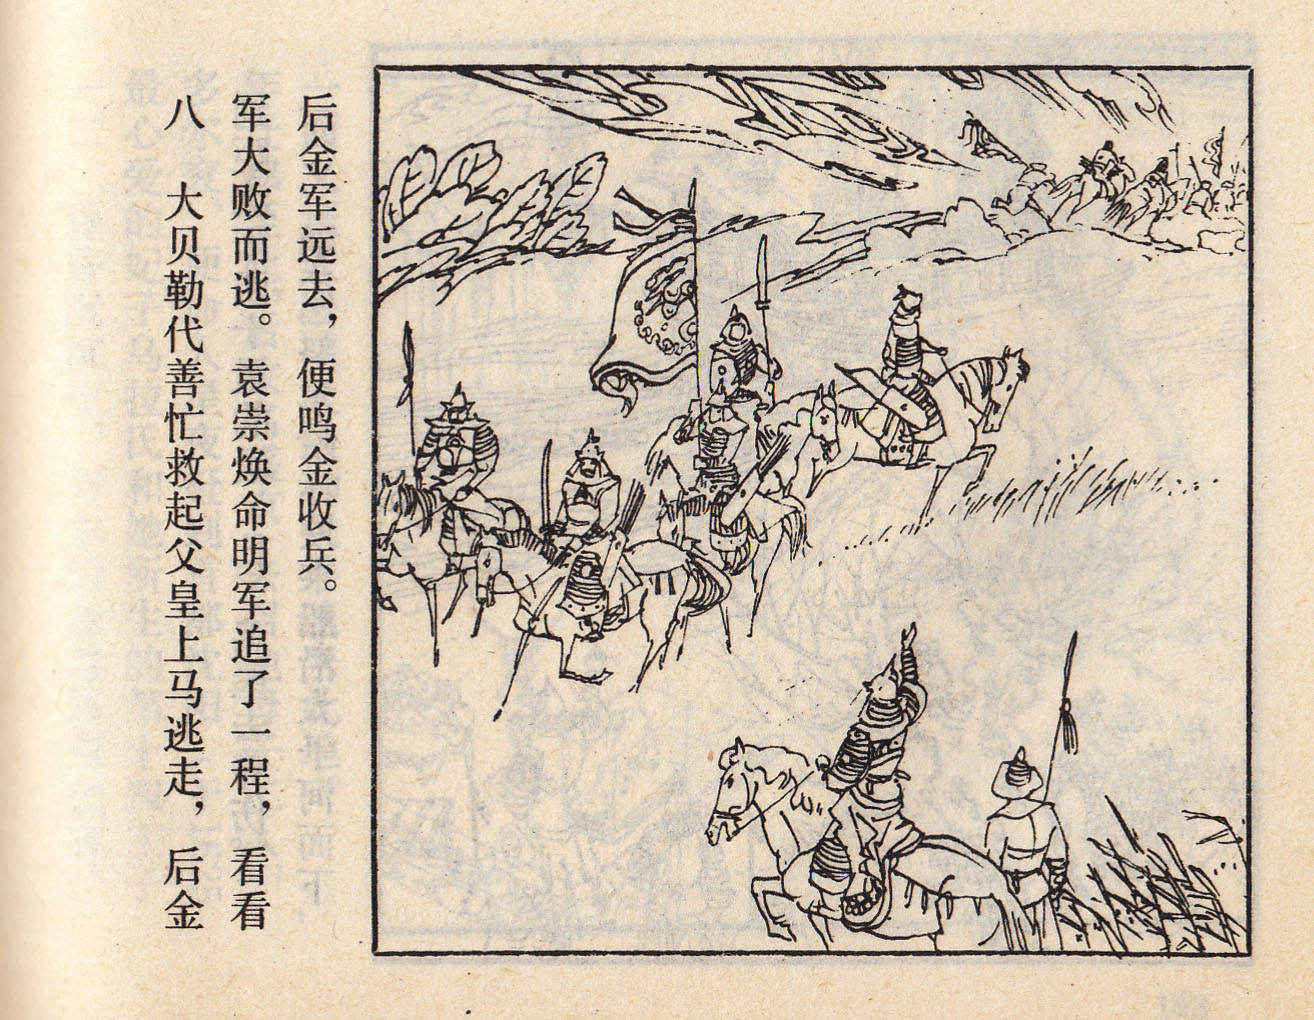 八　大贝勒代善忙救起父皇上马逃走，后金
军大败而逃。袁崇焕命明军追了一程，看看
后金军远去，便鸣金收兵。